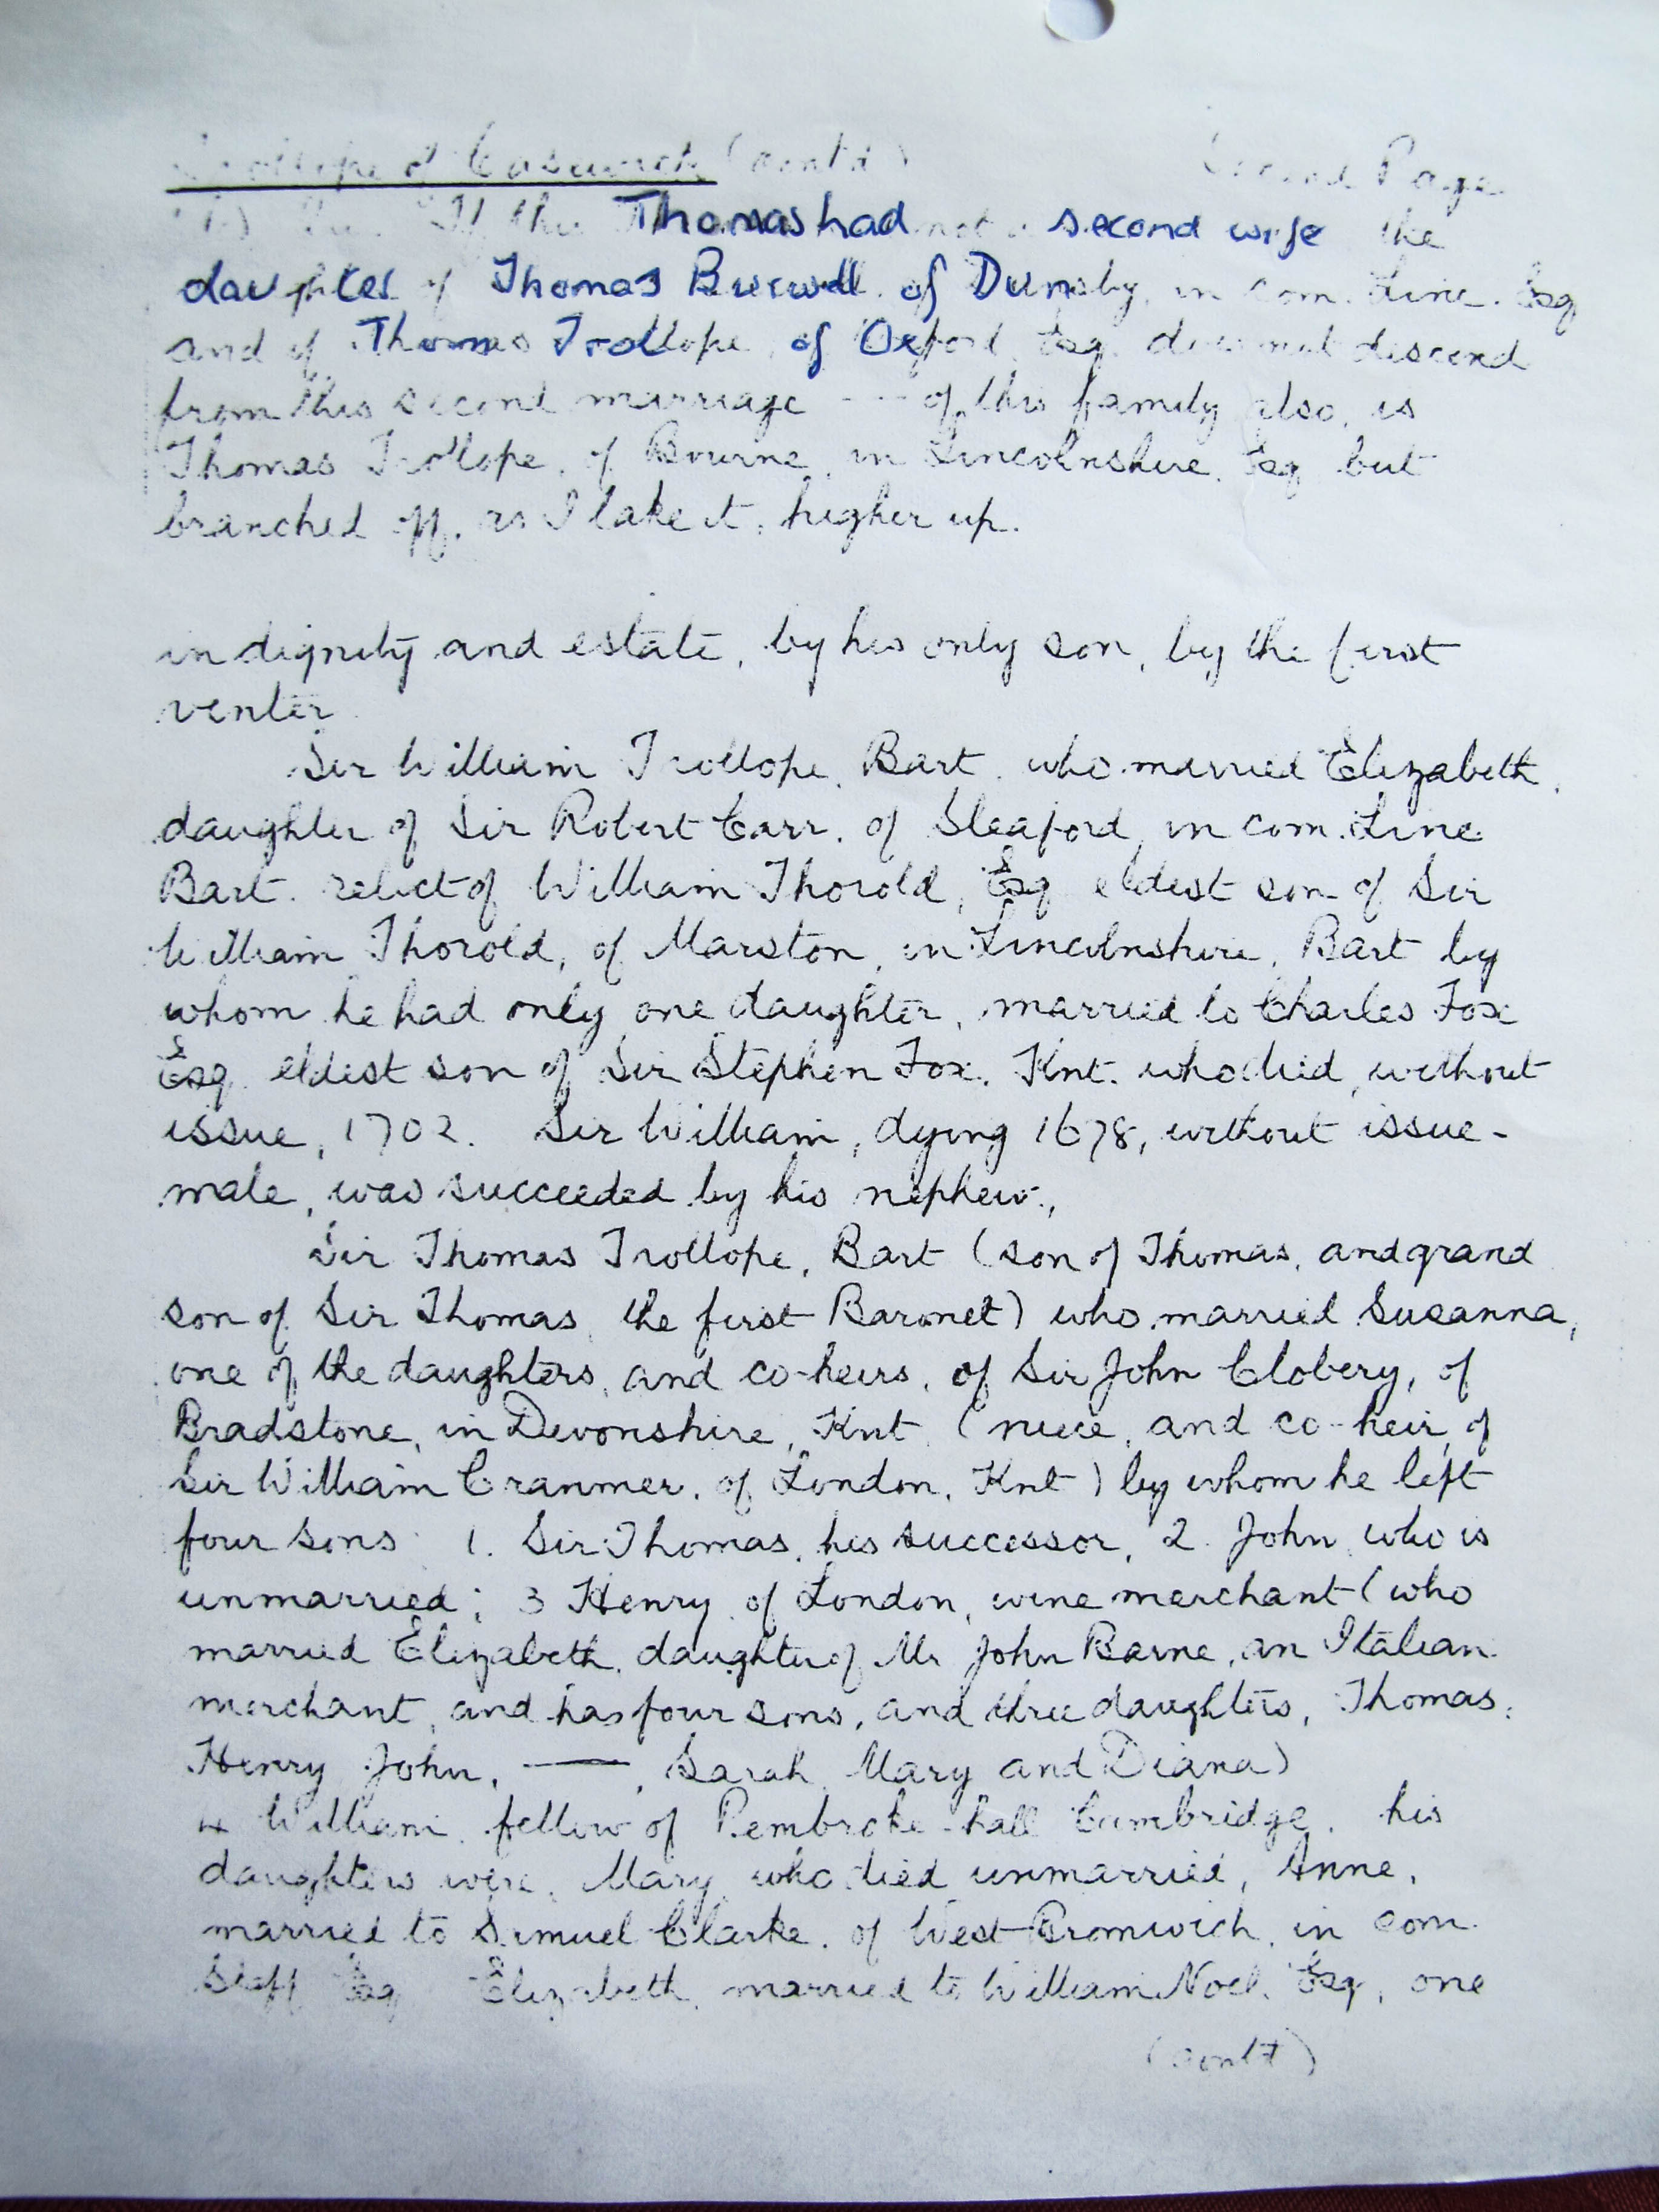 Trollope of Casewick (contd) Second Page
If this Thomas had not a second wife the
daughter of Thomas Burwell of Dunsby, in com. Linc. Esq
and if Thomas Trollope, of Oxford, Esq. does not descend
from this second marriage --- of this family also, is
Thomas Trollope, of Bourne, in Lincolnshire. Esq but
branched off, as I take it, higher up.
in dignity and estate, by his only son, by the first
venter
Sir William Trollope, Bart. who married Elizabeth,
daughter of Sir Robert Carr, of Sleaford, in com. Linc
Bart. relict of William Thorold, Esq eldest son of Sir
William Thorold, of Marston, in Lincolnshire, Bart by
whom he had only one daughter, married to Charles Fox
Esq. eldest son of Sir Stephen Fox, Knt. who died, without
issue, 1702. Sir William, dying 1678, without issue-
male, was succeeded by his nephew.,
Sir Thomas Trollope, Bart (son of Thomas, and grand
son of Sir Thomas, the first Baronet) who married Susanna,
one of the daughters, and co-heirs, of Sir John Clobery, of
Bradstone, in Devonshire, Knt. (niece, and co-heir, of
Sir William Cranmer, of London, Knt) by whom he left
four sons 1. Sir Thomas, his successor, 2. John, who is
unmarried; 3 Henry, of London, wine merchant (who
married Elizabeth, daughter of Mr John Barne, an Italian
merchant, and has four sons, and three daughters, Thomas,
Henry John, ——, Sarah, Mary and Diana)
4 William, fellow of Pembroke-hall Cambridge, his
daughters were, Mary, who died unmarried, Anne,
married to Samuel Clarke, of West-Bromwich, in com.
Staff Esq Elizabeth, married to William Noel. Esq, one
(contd)